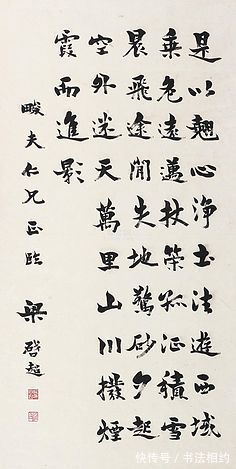 是以翹心淨土法遊西域
乘危遠邁杖策孤征積雪
晨飛途閒失地驚砂夕起
空外迷天萬里山川撥煙
霞而進影
畯夫仁兄正臨
梁啓超
快传号／书法相约